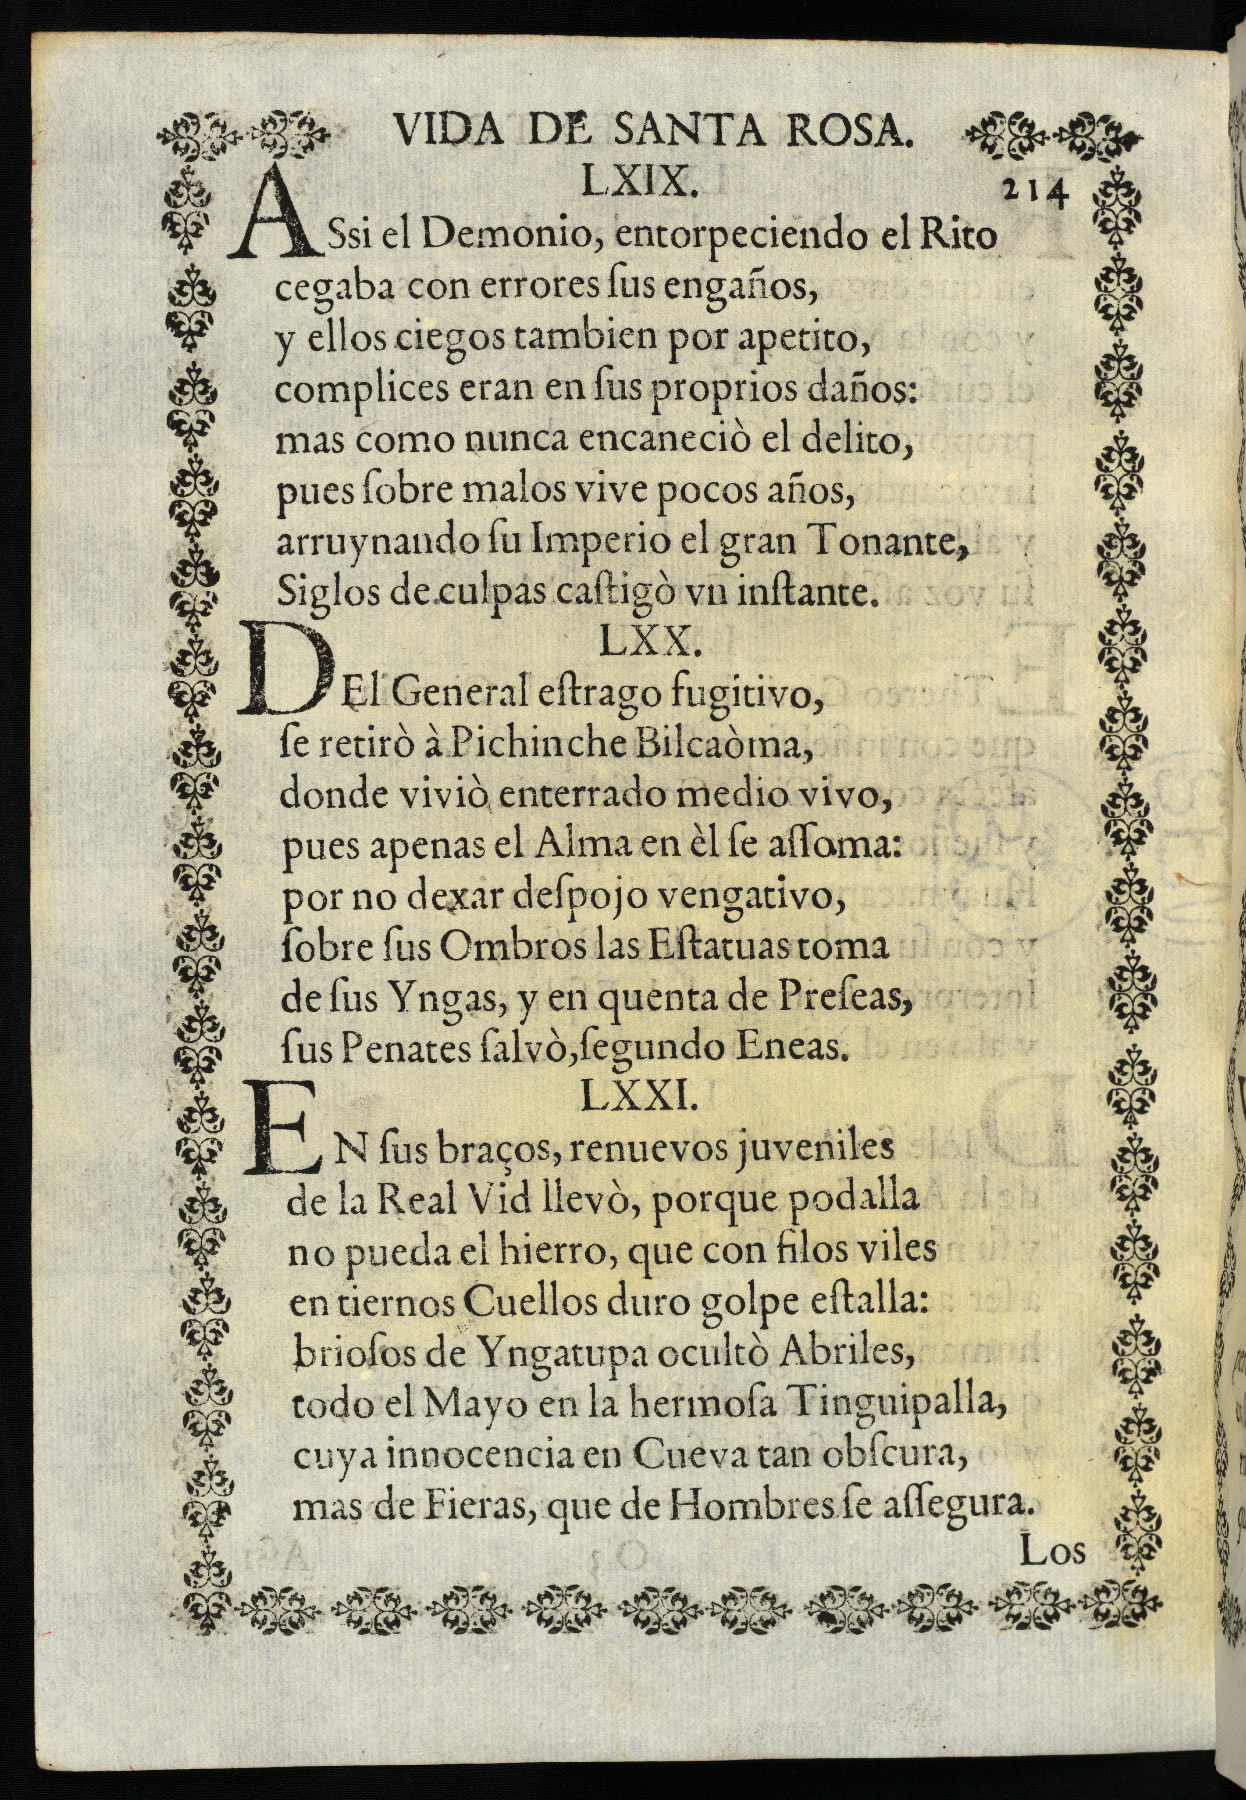 VIDA DE SANTA ROSA.
LXIX. 214
ASsi el Demonio, entorpeciendo el Rito
cegaba con errores ſus engaños,
y ellos ciegos tambien por apetito,
complices eran en ſus proprios daños:
mas como nunca encaneciò el delito,
pues ſobre malos vive pocos años,
arruynando ſu Imperio el gran Tonante,
Siglos de culpas caſtigò vn inſtante.
LXX.
DEl General eſtrago fugitivo,
ſe retirò à Pichinche Bilcaòma,
donde viviò enterrado medio vivo,
pues apenas el Alma en èl ſe aſſoma:
por no dexar deſpojo vengativo,
ſobre ſus Ombros las Eſtatuas toma
de ſus Yngas, y en quenta de Preſeas,
ſus Penates ſalvò, ſegundo Eneas.
LXXI.
EN ſus braços, renuevos juveniles
de la Real Vid llevò, porque podalla
no pueda el hierro, que con filos viles
en tiernos Cuellos duro golpe eſtalla:
brioſos de Yngatupa ocultò Abriles,
todo el Mayo en la hermoſa Tinguipalla,
cuya innocencia en Cueva tan obſcura,
mas de Fieras, que de Hombres ſe aſſegura.
Los